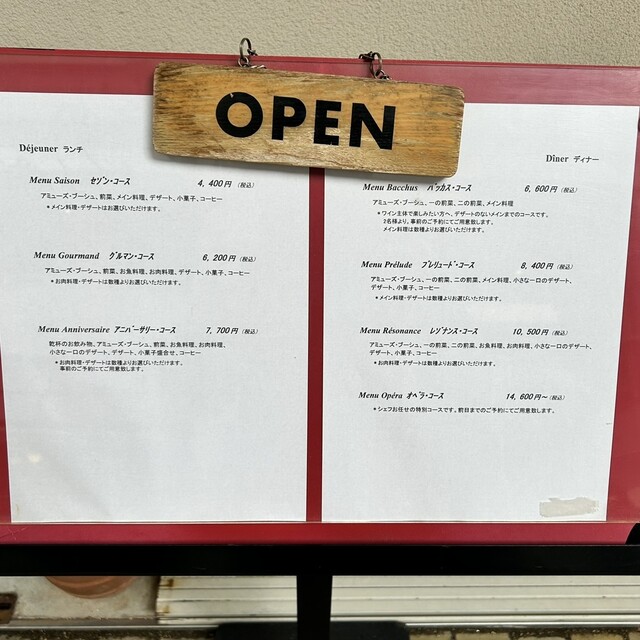 OPEN
Déjeuner ランチ
Menu Saison セゾン・コース 4,400円 (税込)
アミューズ・ブーシュ、前菜、メイン料理、デザート、小菓子、コーヒー
*メイン料理・デザートはお選びいただけます。
Menu Gourmand グルマン・コース 6,200円 (税込)
アミューズ・ブーシュ、前菜、お魚料理、お肉料理、デザート、小菓子、コーヒー
*お肉料理・デザートは数種よりお選びいただけます。
Menu Anniversaire アニバーサリー・コース 7,700円 (税込)
乾杯のお飲み物、アミューズ・ブーシュ、前菜、お魚料理、お肉料理、
小さな一口のデザート、デザート、小菓子盛合せ、コーヒー
*お肉料理・デザートは数種よりお選びいただけます。
事前のご予約にてご用意致します。
Dîner ディナー
Menu Bacchus バッカス・コース 6,600円 (税込)
アミューズ・ブーシュ、一の前菜、二の前菜、メイン料理
*ワイン主体で楽しみたい方へ、デザートのないメインまでのコースです。
2名様より、事前のご予約にてご用意致します。
メイン料理は数種よりお選びいただけます。
Menu Prélude プレリュード・コース 8,400円 (税込)
アミューズ・ブーシュ、一の前菜、二の前菜、メイン料理、小さな一口のデザート、
デザート、小菓子、コーヒー
*メイン料理・デザートは数種よりお選びいただけます。
Menu Résonance レゾナンス・コース 10,500円 (税込)
アミューズ・ブーシュ、一の前菜、二の前菜、お魚料理、お肉料理、小さな一口のデザート、
デザート、小菓子、コーヒー
*お肉料理・デザートは数種よりお選びいただけます。
Menu Opéra オペラ・コース 14,600円～ (税込)
*シェフお任せの特別コースです。前日までのご予約にてご用意致します。